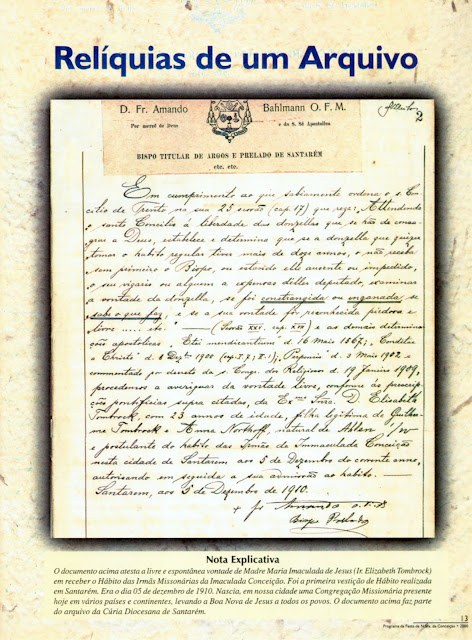 Relíquias de um Arquivo
D. Fr. Amando Bahlmann O. F. M.
Por mercê de Deus e da S. Sé Apostolica
2
BISPO TITULAR DE ARGOS E PRELADO DE SANTARÉM
etc. etc.
Em cumprimento ao que sabiamente ordena o s. Con-
cilio de Trento na sua 25 sessão (cap. 17) que reza: Attendendo
o santo Concilio à liberdade das donzellas que se hão de consa-
grar a Deus, estabelece e determina que se a donzella que quizer
tomar o habito regular tiver mais de doze annos, o não receba
sem primeiro o Bispo, ou estando elle ausente ou impedido,
o seu vigario ou alguem a expensas delles deputado, examinar
a vontade da donzella, se foi constrangida ou enganada, se
sabe o que faz, e se a sua vontade for reconhecida piedosa e
livre ..... etc. — (Sessão XXV. cap. XVII) e as demais determina-
ções apostolicas: Etsi mendicantium d. 16 Maio 1567; Conditae
a Christo d. 8 Dezbro 1900 (cap. I. 7; II. 1); Perpensis d. 3 Maio 1902 e
commentado por decreto da s. Congr. dos Religiosos d. 19 Janeiro 1909,
procedemos a averiguar da vontade livre, conforme às prescrip-
ções pontificias supra citadas, da Exma Snra. D. Elisabeth
Tombrock, com 23 annos de idade, filha legitima de Guilher-
me Tombrock e Anna Northoff, natural de Ahlen /W
e postulante do habito das Irmãs da Immaculada Conceição
nesta cidade de Santarem aos 5 de Dezembro do corrente anno,
autorisando em seguida a sua admissão ao habito.
Santarem, aos 5 de Dezembro de 1910.
+ fr Amando o. f. m.
Bispo Prelado
Nota Explicativa
O documento acima atesta a livre e espontânea vontade de Madre Maria Imaculada de Jesus (Ir. Elizabeth Tombrock)
em receber o Hábito das Irmãs Missionárias da Imaculada Conceição. Foi a primeira vestição de Hábito realizada
em Santarém. Era o dia 05 de dezembro de 1910. Nascia, em nossa cidade uma Congregação Missionária presente
hoje em vários países e continentes, levando a Boa Nova de Jesus a todos os povos. O documento acima faz parte
do arquivo da Cúria Diocesana de Santarém.
13
Programa da Festa de N. Sra. da Conceição